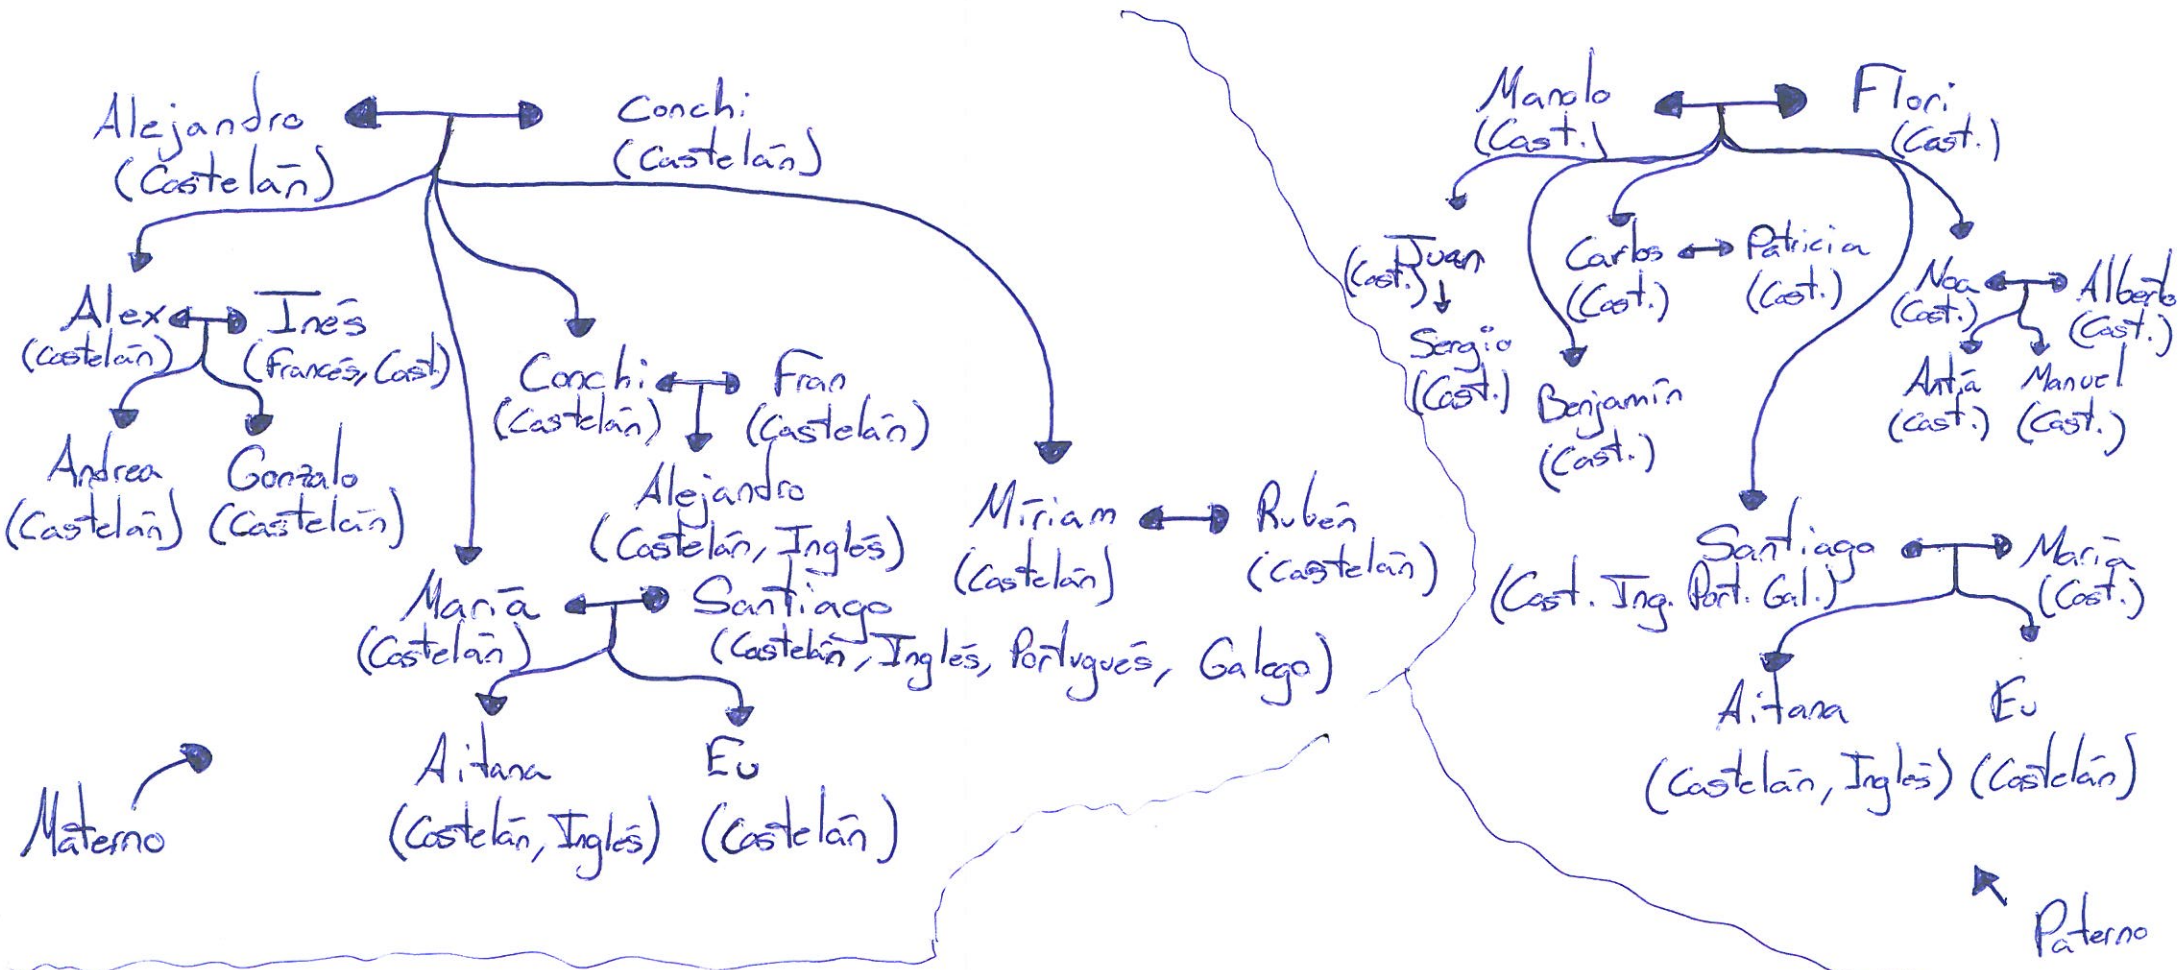 Alejandro
(Castelán)
Conchi
(Castelán)
Alex
(Castelán)
Inés
(Francés, Cast)
Andrea
(Castelán)
Gonzalo
(Castelán)
Conchi
(Castelán)
Fran
(Castelán)
Alejandro
(Castelán, Inglés)
Míriam
(Castelán)
Rubén
(Castelán)
María
(Castelán)
Santiago
(Castelán, Inglés, Portugués, Galego)
Aitana
(Castelán, Inglés)
Eu
(Castelán)
Materno
Manolo
(Cast.)
Flori
(Cast.)
Juan
(Cast.)
Sergio
(Cast.)
Benjamín
(Cast.)
Carlos
(Cast.)
Patricia
(Cast.)
Noa
(Cast.)
Alberto
(Cast.)
Antía
(Cast.)
Manuel
(Cast.)
Santiago
(Cast. Ing. Port. Gal.)
María
(Cast.)
Aitana
(Castelán, Inglés)
Eu
(Castelán)
Paterno